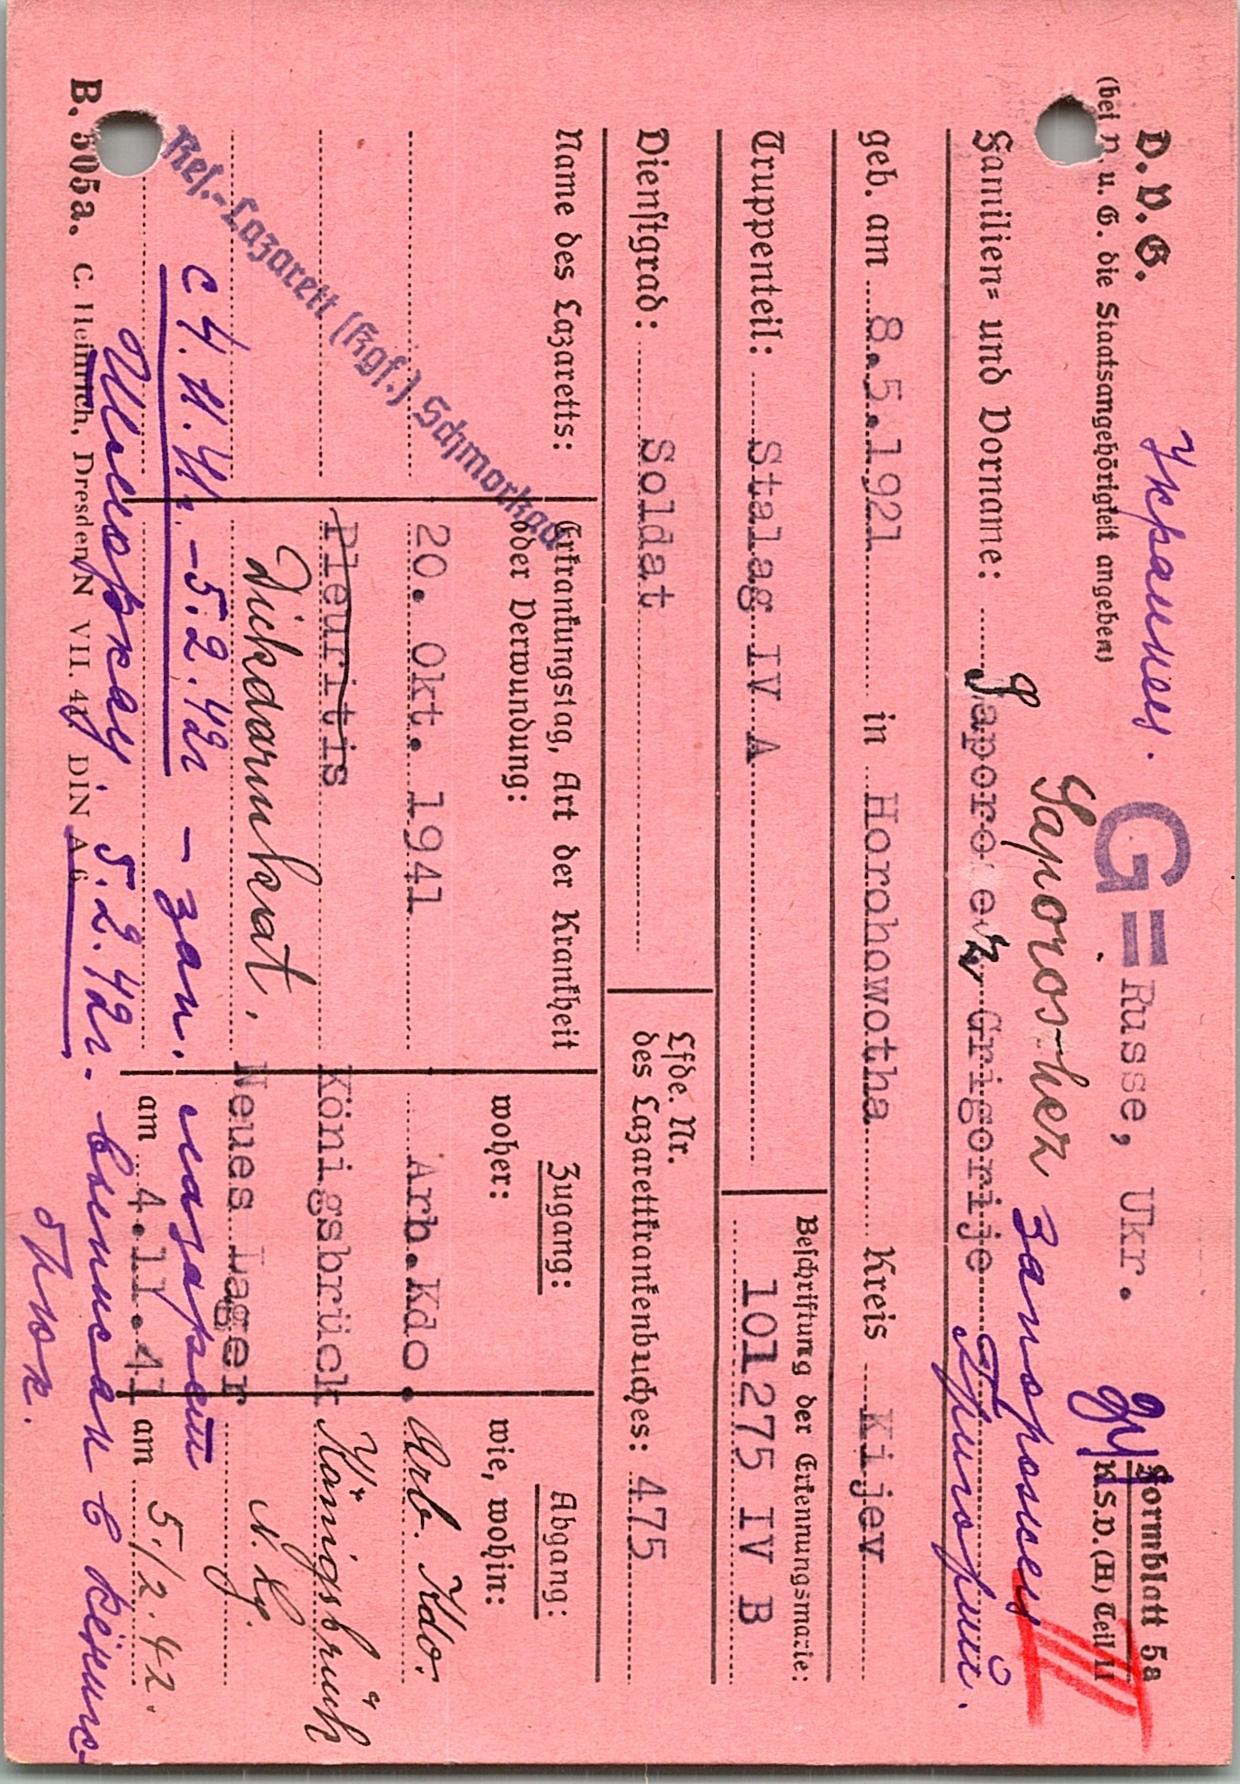 Украинец. G = Russe, Ukr. Formblatt 5a
D. V. G. K.S.V. (H) Teil II
(bei n. u. G. die Staatsangehörigkeit angeben)
Saporoshez Запорожец III
Familien= und Vorname: Saporo ez, Grigorije Григорий.
geb. am 8.5.1921 in Horohowotha Kreis Kijev
Truppenteil: Stalag IV A
Beschriftung der Erkennungsmarke:
101275 IV B
Dienstgrad: Soldat
Lfde. Nr.
des Lazarettkrankenbuches: 475
Name des Lazaretts:
Erkrankungstag, Art der Krankheit
oder Verwundung:
Zugang:
woher:
Abgang:
wie, wohin:
Res.-Lazarett (Kgf.) Schmorkau
20. Okt. 1941 Arb.Kdo. Arb. Kdo.
Pleuritis Königsbrück Königsbrück
Dickdarmkat. Neues Lager N. Lg.
с 4.11.41г. - 5.2.42г - зап. лазарет
am 4.11.41 am 5./2.42.
Шморкау. 5.2.42г. выписан в Кёниг-
брюк.
B. 505a. C. Heinrich, Dresden N VII. 41 DIN A 6